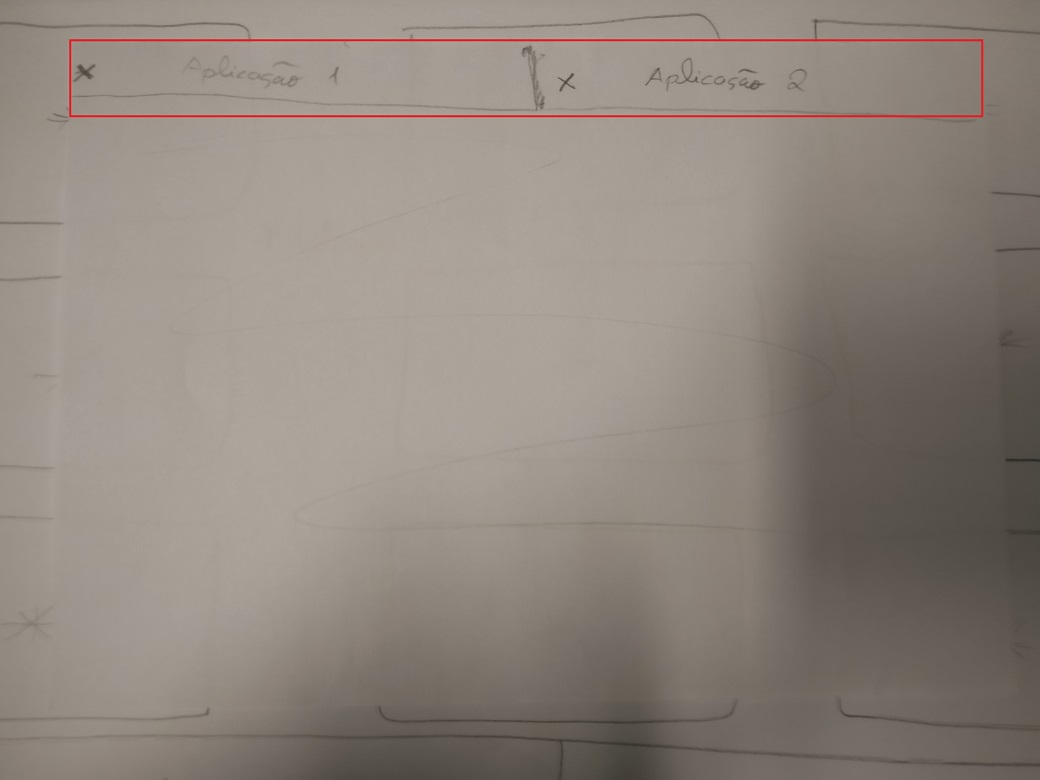 x Aplicação 1 x Aplicação 2